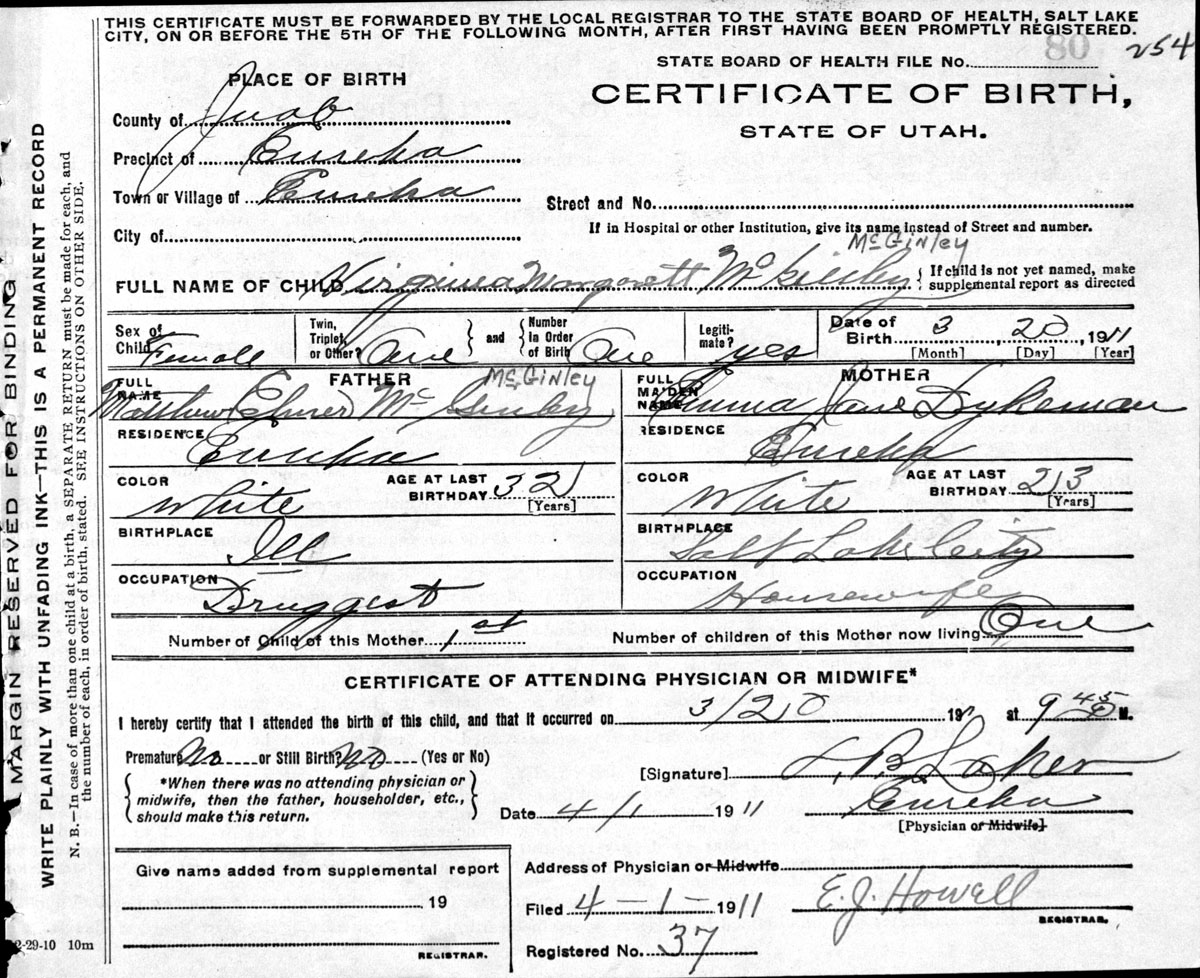 THIS CERTIFICATE MUST BE FORWARDED BY THE LOCAL REGISTRAR TO THE STATE BOARD OF HEALTH, SALT LAKE
CITY, ON OR BEFORE THE 5TH OF THE FOLLOWING MONTH, AFTER FIRST HAVING BEEN PROMPTLY REGISTERED.
STATE BOARD OF HEALTH FILE No. 80 254
PLACE OF BIRTH
CERTIFICATE OF BIRTH,
STATE OF UTAH.
County of Juab
Precinct of Eureka
Town or Village of Eureka
Street and No.
City of
If in Hospital or other Institution, give its name instead of Street and number.
McGinley
FULL NAME OF CHILD Virginia Margarett McKinley { If child is not yet named, make
supplemental report as directed
Sex of Child Female
Twin, Triplet, or Other? One } and { Number in Order of Birth One
Legiti-mate? yes
Date of Birth 3 20 1911
[Month] [Day] [Year]
FATHER
McGinley
FULL NAME Matthew McGinley
MOTHER
FULL MAIDEN NAME Emma Jane Dykeman
RESIDENCE Eureka
RESIDENCE Eureka
COLOR White AGE AT LAST BIRTHDAY 32 [Years]
COLOR White AGE AT LAST BIRTHDAY 23 [Years]
BIRTHPLACE Ill
BIRTHPLACE Salt Lake City
OCCUPATION Druggest
OCCUPATION Housewife
Number of Child of this Mother 1st
Number of children of this Mother now living One
CERTIFICATE OF ATTENDING PHYSICIAN OR MIDWIFE*
I hereby certify that I attended the birth of this child, and that it occurred on 3/20 1911 at 9 45 M.
Premature No or Still Birth? No (Yes or No)
*When there was no attending physician or
midwife, then the father, householder, etc.,
should make this return.
[Signature]
Eureka
Date 4/1 1911
[Physician or Midwife]
Give name added from supplemental report
19
REGISTRAR.
Address of Physician or Midwife
Filed 4-1-1911 E.J. Howell
REGISTRAR.
Registered No. 37
2-29-10 10m
MARGIN RESERVED FOR BINDING
WRITE PLAINLY WITH UNFADING INK—THIS IS A PERMANENT RECORD
N. B.—In case of more than one child at a birth, a SEPARATE RETURN must be made for each, and
the number of each, in order of birth, stated. SEE INSTRUCTIONS ON OTHER SIDE.